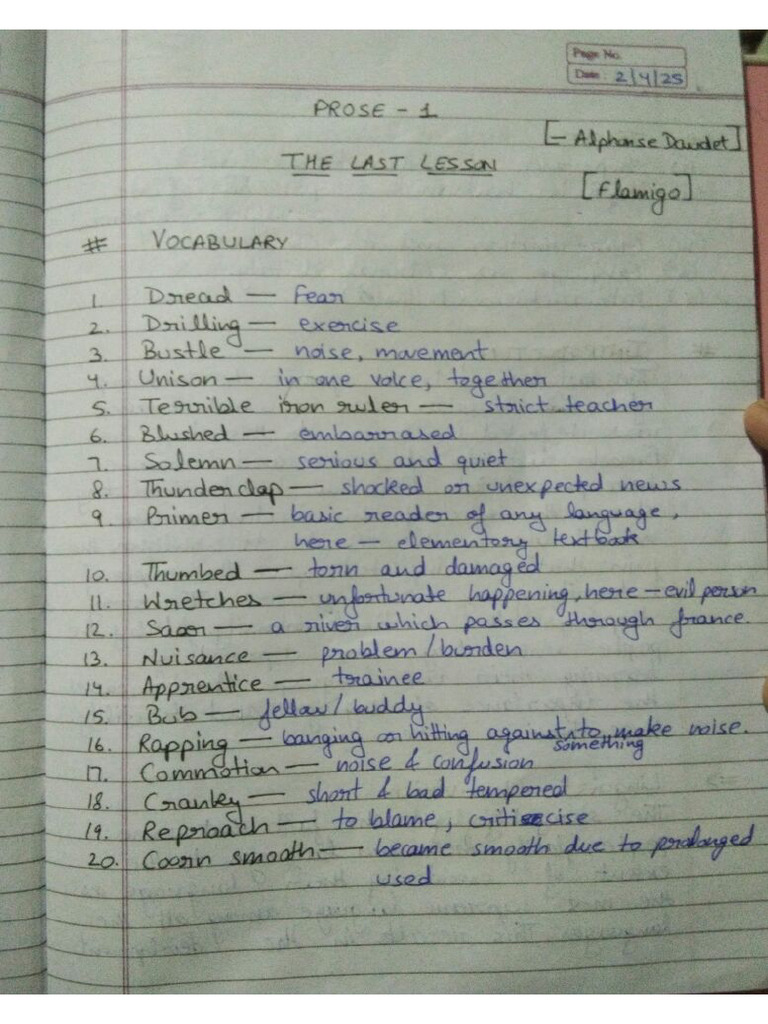 Page No.
Date: 2/4/25
PROSE - 1
[- Alphonse Daudet]
THE LAST LESSON
[Flamigo]
# VOCABULARY
1. Dread — Fear
2. Drilling — exercise
3. Bustle — noise, movement
4. Unison — in one voice, together
5. Terrible iron ruler — strict teacher
6. Blushed — embarrased
7. Solemn — serious and quiet
8. Thunderclap — shocked or unexpected news
9. Primer — basic reader of any language,
here — elementory textbook
10. Thumbed — torn and damaged
11. Wretches — unfortunate happening, here — evil person
12. Saar — a river which passes through france.
13. Nuisance — problem/burden
14. Apprentice — trainee
15. Bub — fellow/buddy
16. Rapping — banging or hitting against something to make noise.
17. Commotion — noise & confusion
18. Crankey — short & bad tempered
19. Reproach — to blame, criticise
20. Coorn smooth — became smooth due to prolonged
used